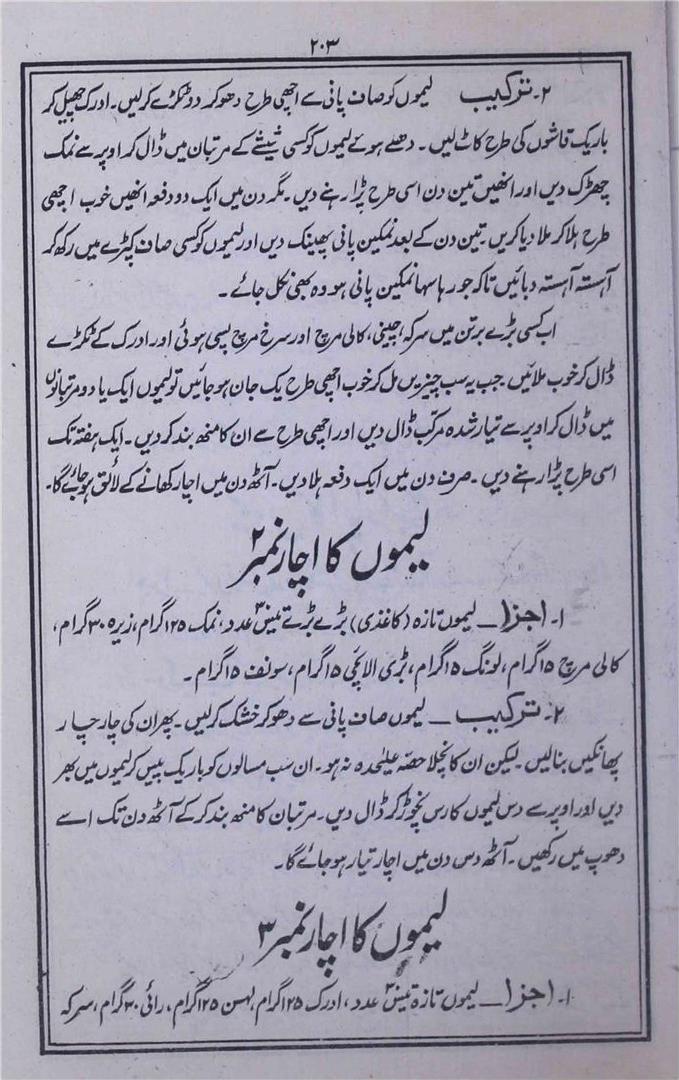 ۲۰۳
۲۔ ترکیب لیموں کو صاف پانی سے اچھی طرح دھو کر دو ٹکڑے کر لیں۔ ادرک چھیل کر
باریک قاشوں کی طرح کاٹ لیں۔ دھلے ہوئے لیموں کو کسی شیشے کے مرتبان میں ڈال کر اوپر سے نمک
چھڑک دیں اور انھیں تین دن اسی طرح پڑا رہنے دیں۔ مگر دن میں ایک دو دفعہ انھیں خوب اچھی
طرح ہلا کر ملا دیا کریں۔ تین دن کے بعد نمکین پانی پھینک دیں اور لیموں کو کسی صاف کپڑے میں رکھ کر
آہستہ آہستہ دبائیں تاکہ جو رہا سہا نمکین پانی ہو وہ بھی نکل جائے۔
اب کسی بڑے برتن میں سرکہ، چینی، کالی مرچ اور سرخ مرچ پسی ہوئی اور ادرک کے ٹکڑے
ڈال کر خوب ملائیں۔ جب یہ سب چیزیں مل کر خوب اچھی طرح یک جان ہو جائیں تو لیموں ایک یا دو مرتبانوں
میں ڈال کر اوپر سے تیار شدہ مرکب ڈال دیں اور اچھی طرح سے ان کا منھ بند کر دیں۔ ایک ہفتہ تک
اسی طرح پڑا رہنے دیں۔ صرف دن میں ایک دفعہ ہلا دیں۔ آٹھ دن میں اچار کھانے کے لائق ہو جائے گا۔
لیموں کا اچار نمبر ۲
۱۔ اجزا ـ لیموں تازہ (کاغذی) بڑے بڑے تیس ۳۰ عدد، نمک ۱۲۵ گرام، زیرہ ۳۰ گرام،
کالی مرچ ۱۵ گرام، لونگ ۱۵ گرام، بڑی الائچی ۱۵ گرام، سونف ۱۵ گرام۔
۲۔ ترکیب ـ لیموں صاف پانی سے دھو کر خشک کر لیں۔ پھر ان کی چار چار
پھانکیں بنا لیں۔ لیکن ان کا نچلا حصّہ علیحدہ نہ ہو۔ ان سب مسالوں کو باریک پیس کر لیموں میں بھر
دیں اور اوپر سے دس لیموں کا رس نچوڑ کر ڈال دیں۔ مرتبان کا منھ بند کر کے آٹھ دن تک اسے
دھوپ میں رکھیں۔ آٹھ دس دن میں اچار تیار ہو جائے گا۔
لیموں کا اچار نمبر ۳
۱۔ اجزا ـ لیموں تازہ تیس ۳۰ عدد، ادرک ۱۲۵ گرام، لہسن ۱۲۵ گرام، رائی ۳۰ گرام، سرکہ